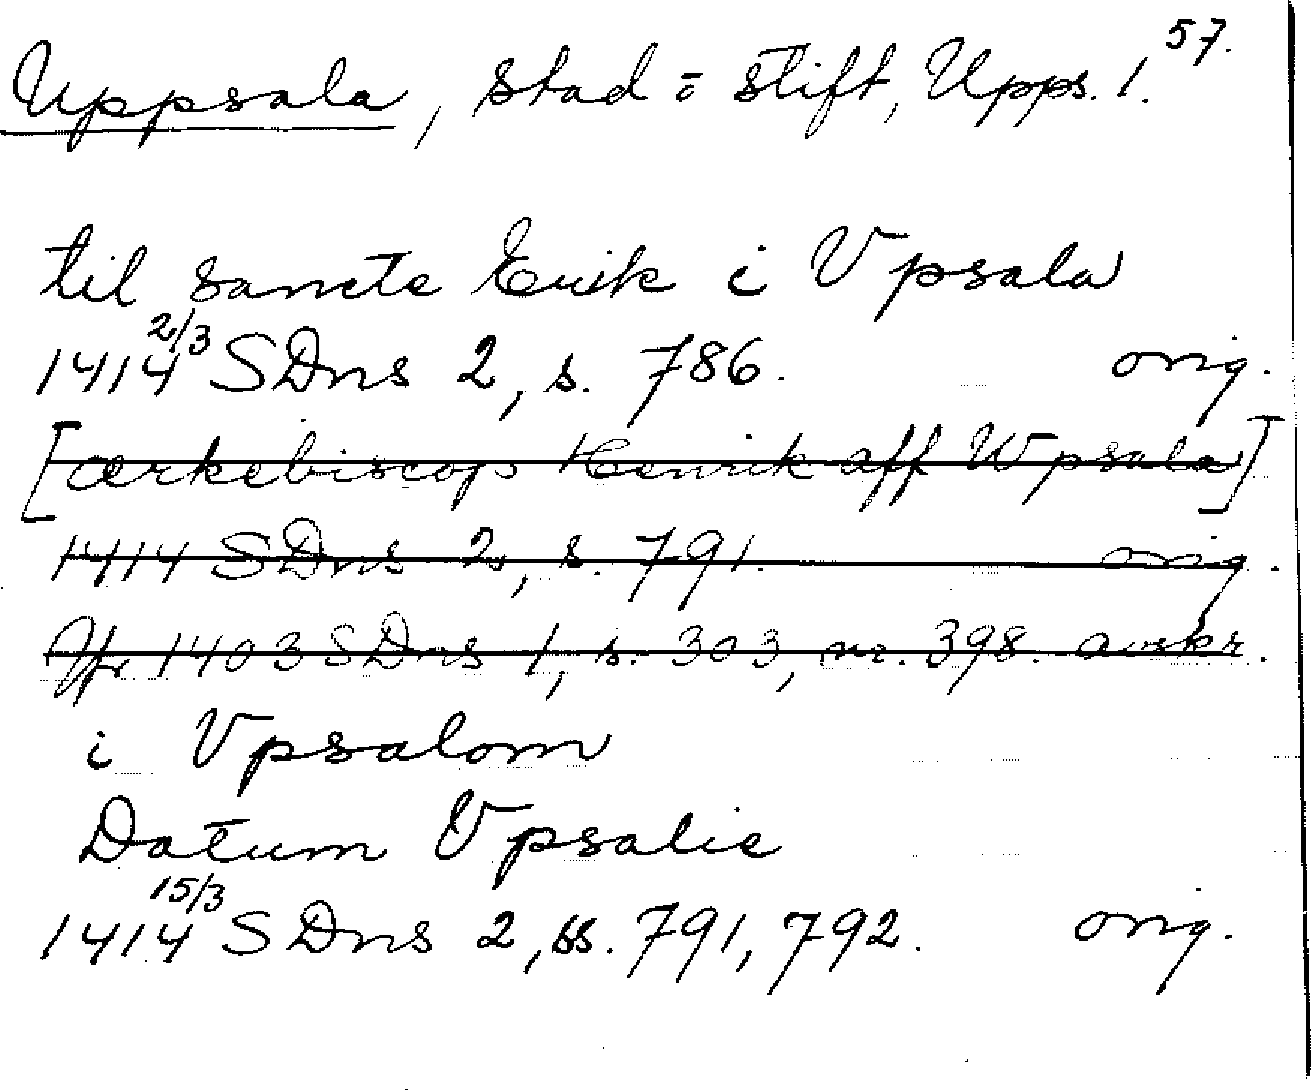 57.
Uppsala, stad = stift, Upps. l.
til sancte Erik i Vpsala
1414 2/3 SDns 2, s. 786. orig.
[ærkebiscop Henrik aff Wpsala]
1414 SDns 2, s. 791. orig.
Jfr 1403 SDns 1, s. 303, nr. 398. avskr.
i Vpsalom
Datum Vpsalie
1414 15/3 SDns 2, ss. 791, 792. orig.